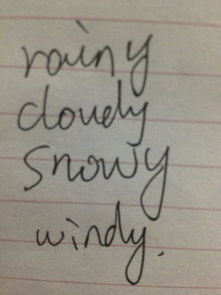 rainy
cloudy
snowy
windy.